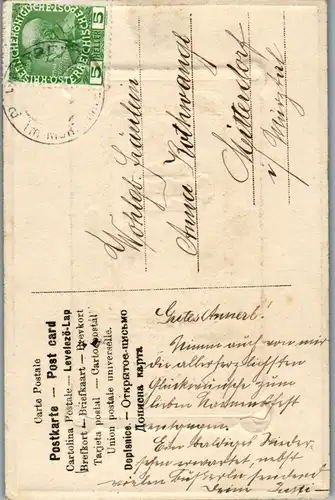 5 HELLER 5
Carte Postale
Postkarte — Post card
Cartolina Postale — Levelező-Lap
Brefkort — Briefkaart — Brevkort
Tarjeta postal — Cartão postál
Union postale universelle.
Dopisnice — Открытое-письмо
Дописна карта
Wohlgb. Fräulein
Anna Rothwangl
Mitterdorf
i/ Mürztal
Gutes Annerl!
Nimm auch von mir
die allerherzlichsten
Glückwünsche zum
lieben Namensfest
entgegen.
Ein baldiges Wieder-
sehen erwartet nebst
vielen Busserln sendend
Deine